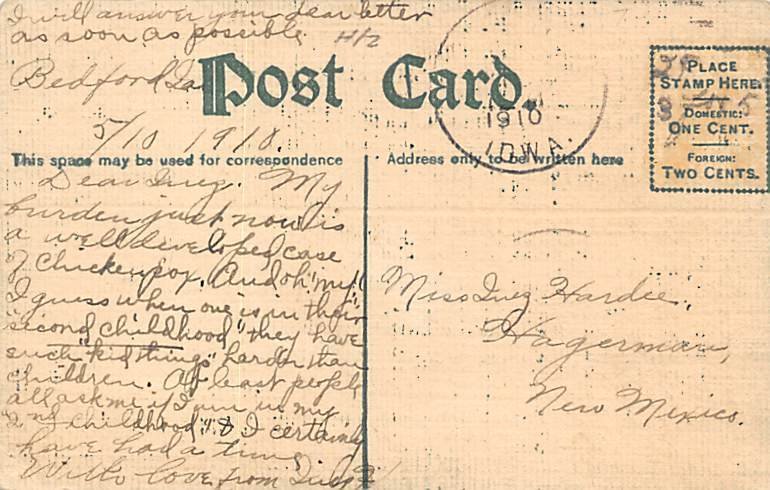 I will answer your dear letter
as soon as possible
Bedford Ia
Post Card.
5/10 1910.
This space may be used for correspondence
Address only to be written here
1910
IOWA
PLACE
STAMP HERE
DOMESTIC:
ONE CENT.
FOREIGN:
TWO CENTS.
Dear Inez. My
burden just now is
a well developed case
of Chicken pox. And oh "my"!
I guess when one is in their
"second childhood" they have
such "kid things" harder than
children. At least people
all ask me if I am in my
2nd childhood & I certainly
have had a time.
With love, from
Miss Inez Hardie,
Hagerman,
New Mexico.